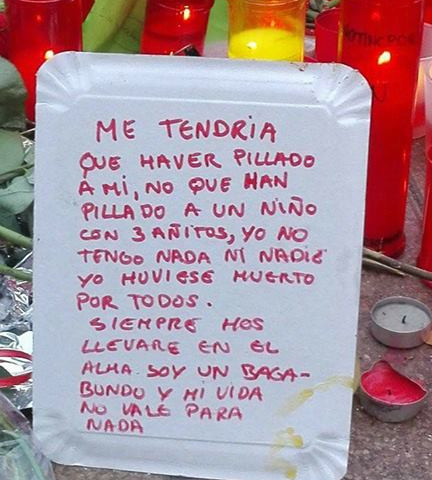 ME TENDRIA
QUE HAVER PILLADO
A MI, NO QUE HAN
PILLADO A UN NIÑO
CON 3 AÑITOS, YO NO
TENGO NADA NI NADIE
YO HUVIESE MUERTO
POR TODOS.
SIEMPRE HOS
LLEVARE EN EL
ALMA. SOY UN BAGA-
BUNDO Y MI VIDA
NO VALE PARA
NADA